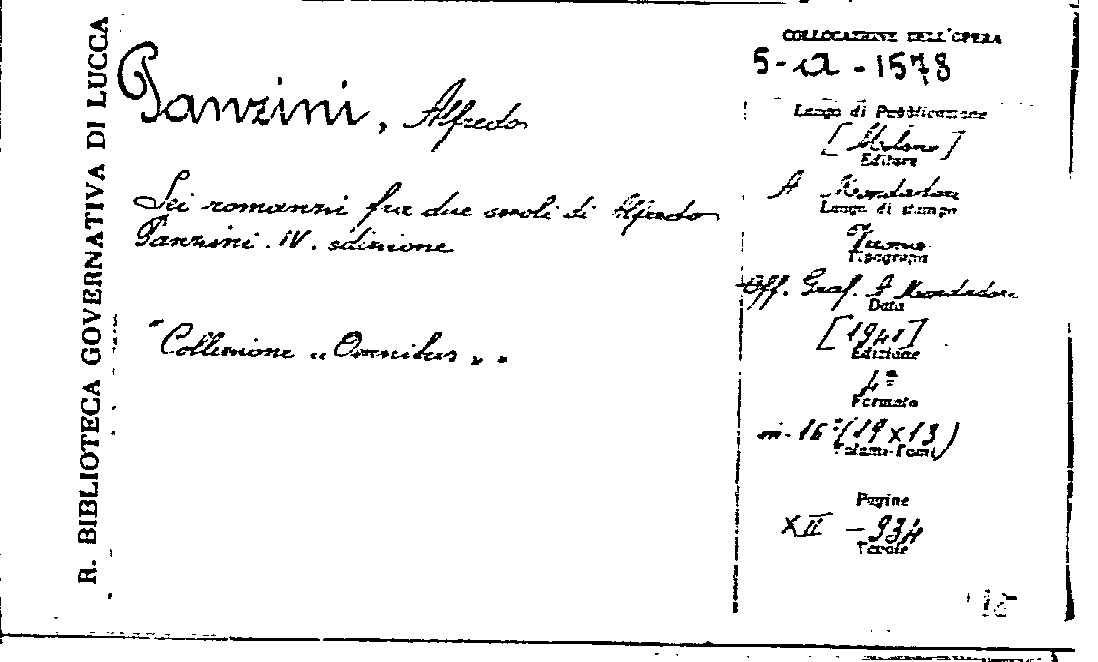 R. BIBLIOTECA GOVERNATIVA DI LUCCA
Panzini, Alfredo
Sei romanzi fra due secoli di Alfredo
Panzini. IV. edizione
"Collezione „ Omnibus „ „
COLLOCAZIONE DELL'OPERA
5-a-1578
Luogo di Pubblicazione
[Milano]
Editore
A Mondadori
Luogo di stampa
Tipografia
Off. Graf. A Mondadori
Data
[1941]
Edizione
4ª
Formato
in-16°(19x13)
Volumi-Tomi
Pagine
XII - 934
Tavole